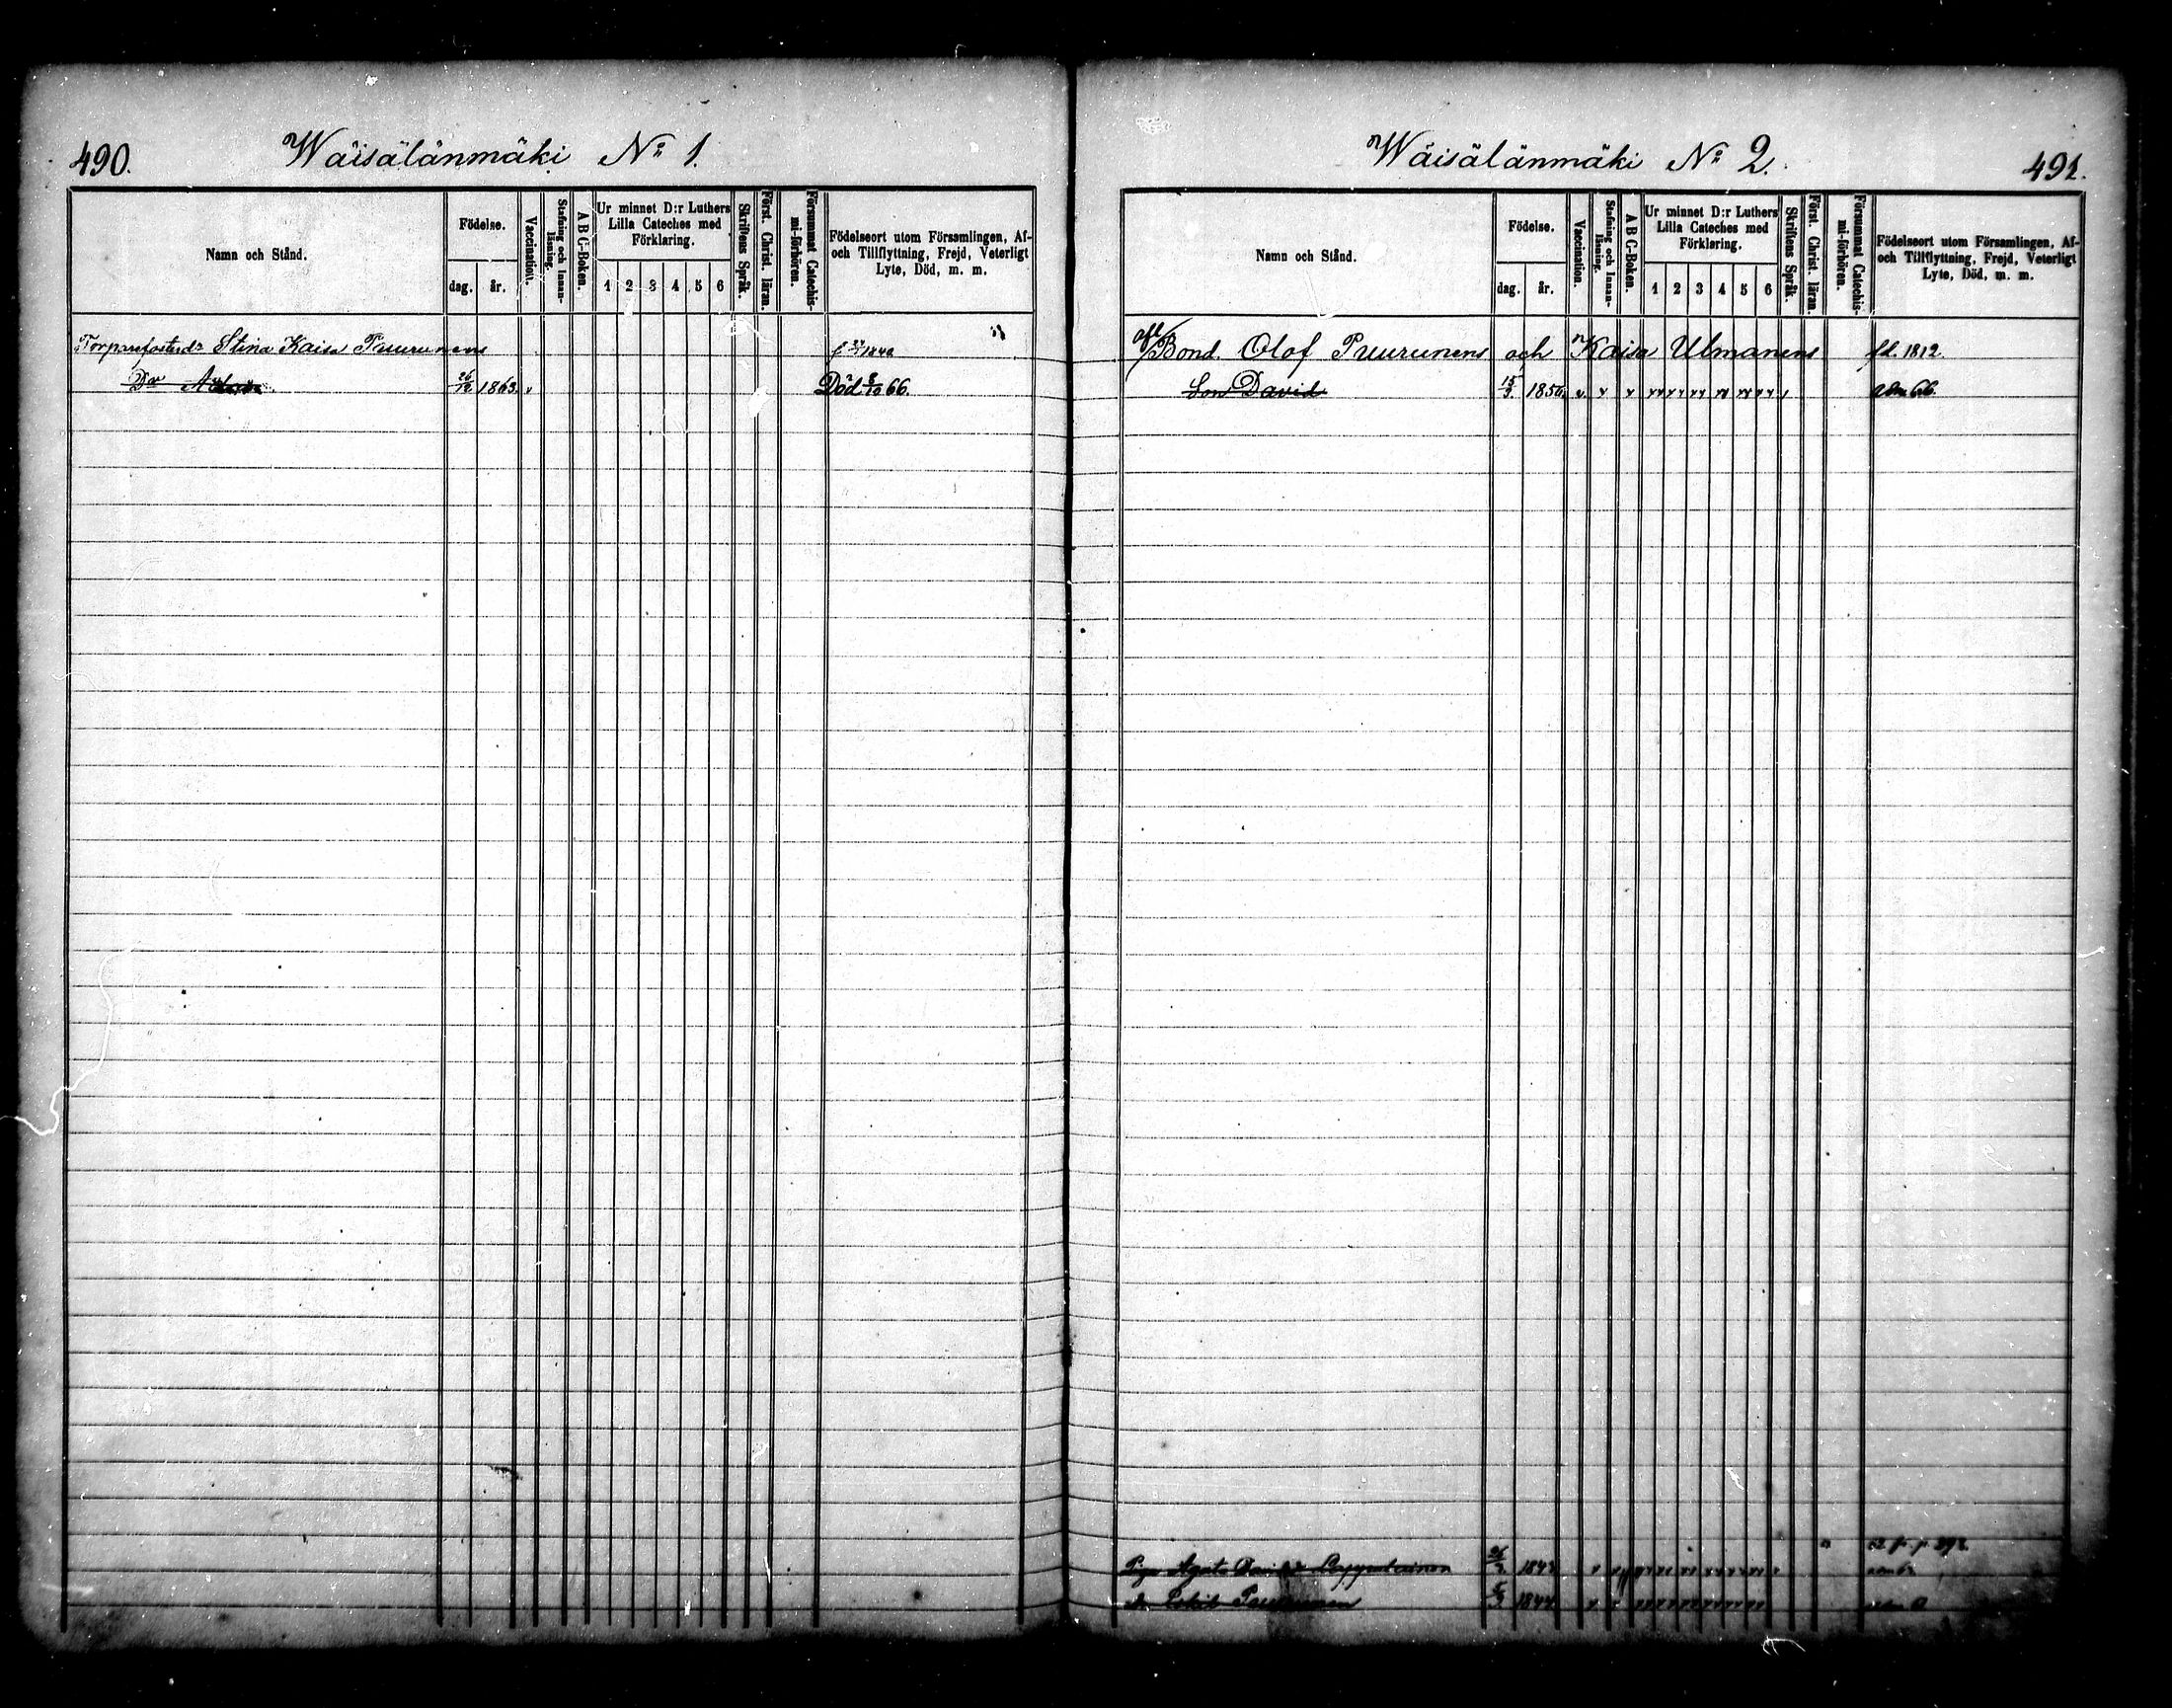 490.
Wäisälänmäki No 1.
Namn och Stånd.
Födelse.
dag.
år.
Vaccination.
Stafning och Innan-
läsning.
A B C-Boken.
Ur minnet D:r Luthers
Lilla Cateches med
Förklaring.
1 2 3 4 5 6
Skriftens Språk.
Först. Christ. läran.
Försummat Catechis-
mi-förhören.
Födelseort utom Församlingen, Af-
och Tillflyttning, Frejd, Veterligt
Lyte, Död, m. m.
Stina Kaisa Puurunens
Dr 26/12 1863 Död 8/10 66.
Wäisälänmäki No 2.
491.
Namn och Stånd.
Födelse.
dag.
år.
Vaccination.
Stafning och Innan-
läsning.
A B C-Boken.
Ur minnet D:r Luthers
Lilla Cateches med
Förklaring.
1 2 3 4 5 6
Skriftens Språk.
Först. Christ. läran.
Försummat Catechis-
mi-förhören.
Födelseort utom Församlingen, Af-
och Tillflyttning, Frejd, Veterligt
Lyte, Död, m. m.
afl/Bond. Olof Puurunens och Kaisa Ulmanens fd. 1812.
Son David 15/3 66.
Puurunen 1844